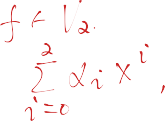 f ∈ V₂.
∑_{i=0}^{2} αᵢ xⁱ,